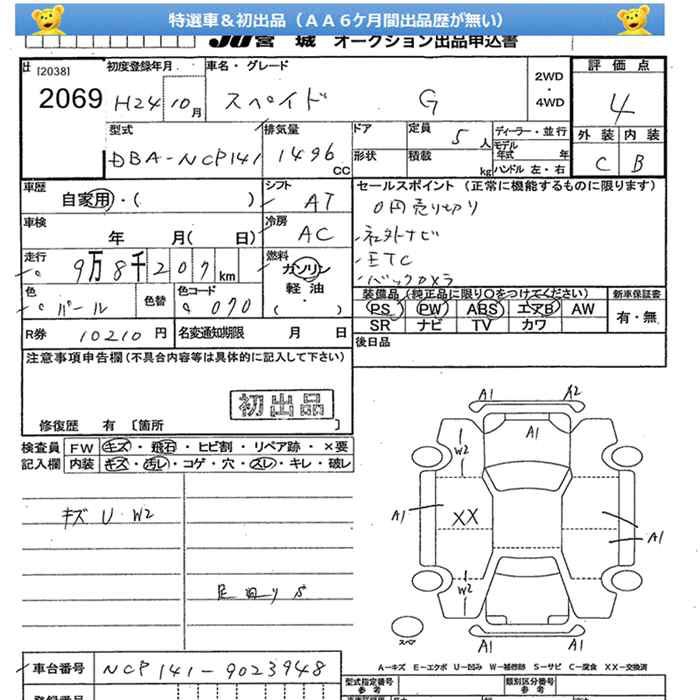 特選車＆初出品（ＡＡ６ケ月間出品歴が無い）
JU宮城 オークション出品申込書
[2038]
2069
初度登録年月
H24 10月
車名・グレード
スペイド G
2WD
・
4WD
評価点
4
外装 内装
C B
型式
DBA-NCP141
排気量
1496 CC
ドア
形状
定員 5人
積載 kg
ディーラー・並行
モデル年式 年
ハンドル 左・右
車歴
自家用・( )
シフト
AT
セールスポイント（正常に機能するものに限ります）
0円売り切り
社外ナビ
ETC
バックカメラ
車検
年 月( 日)
冷房
AC
走行
9万8千207km
燃料
ガソリン
軽油
( )
色
パール
色替
色コード
070
装備品（純正品に限り○をつけてください）
PS PW ABS エアB AW
SR ナビ TV カワ
新車保証書
有・無
R券 10210円
名変通知期限 月 日
後日品
注意事項申告欄（不具合内容等は具体的に記入して下さい）
初出品
修復歴 有〔箇所 〕
検査員記入欄
FW キズ・飛石・ヒビ割・リペア跡・×要
内装 キズ・汚レ・コゲ・穴・スレ・キレ・破レ
キズ U W2
足回りS
A1 A2
A1
W2
A1 XX
A1
W2
スペア
A1 A1
A－キズ E－エクボ U－凹み W－補修跡 S－サビ C－腐食 XX－交換済
車台番号 NCP141-9023948
型式指定番号
参考
類別区分番号
参考
登録番号